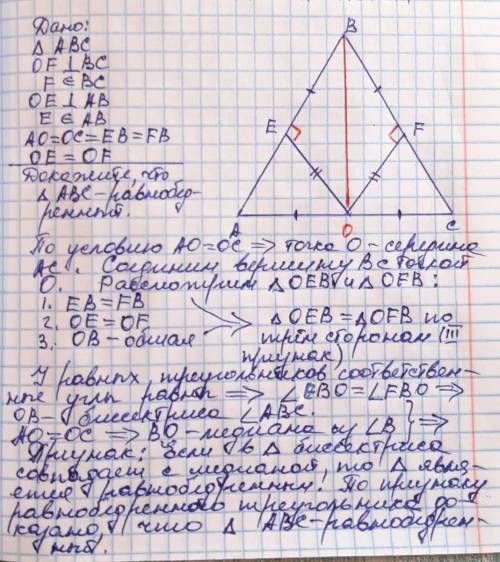 Дано:
Δ ABC
OF ⊥ BC
F ∈ BC
OE ⊥ AB
E ∈ AB
AO=OC=EB=FB
OE = OF
Докажите, что
Δ ABC-равнобед-
ренный.
B
E
F
A
O
C
По условию AO=OC ⇒ точка O - середина
AC. Соединим вершину B с точкой
O. Рассмотрим Δ OEB и Δ OFB:
1. EB=FB
2. OE=OF
3. OB-общая
Δ OEB=ΔOFB по
трём сторонам (III
признак)
У равных треугольников соответствен-
ные углы равны ⇒ ∠EBO=∠FBO ⇒
OB-биссектриса ∠ABC.
AO=OC ⇒ BO-медиана из ∠B } ⇒
Признак: Если в Δ биссектриса
совпадает с медианой, то Δ явля-
ется равнобедренным! По признаку
равнобедренного треугольника до-
казано, что Δ ABC-равнобедрен-
ный.